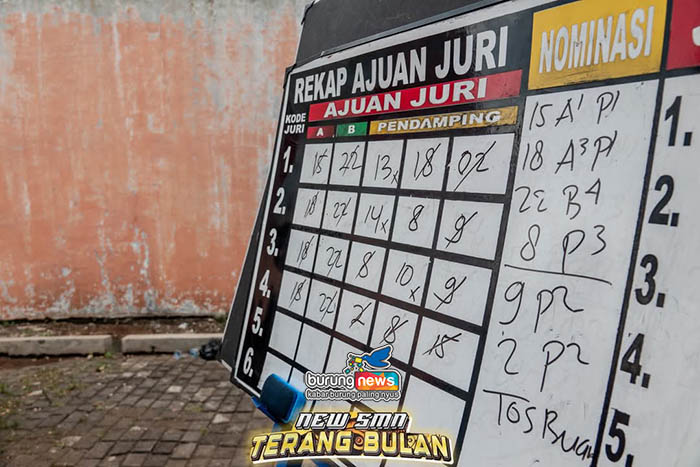 REKAP AJUAN JURI
NOMINASI
KODE JURI
AJUAN JURI
A B PENDAMPING
1. 15 22 13x 18 02
2. 18 22 14x 8 9
3. 18 22 8 10x 9
4. 18 22 2 8 18
5.
6.
15 A1 P1
18 A3 P1
22 B4
8 P3
9 P2
2 P2
TOS
1.
2.
3.
4.
5.
burungnews
kabar burung paling nyus
NEW SMN
TERANG BULAN